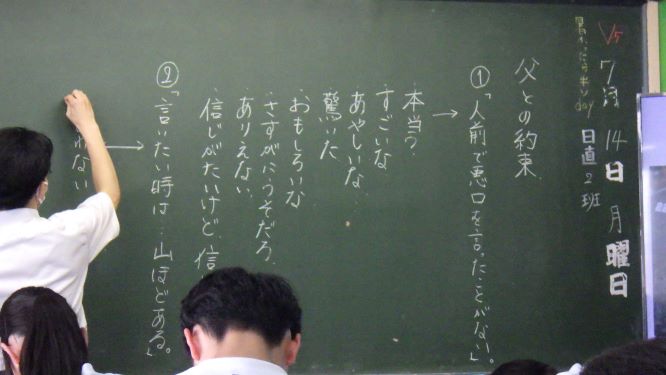 7月14日 月曜日
日直2班
父との約束
①「人前で悪口を言ったことがない。」
→
本当う
すごいな
あやしいな…
驚いた
おもしろいな
さすがにうそだろ、
ありえない
信じがたいけど、信
②「言いたい時は…山ほどある。」
→
れない